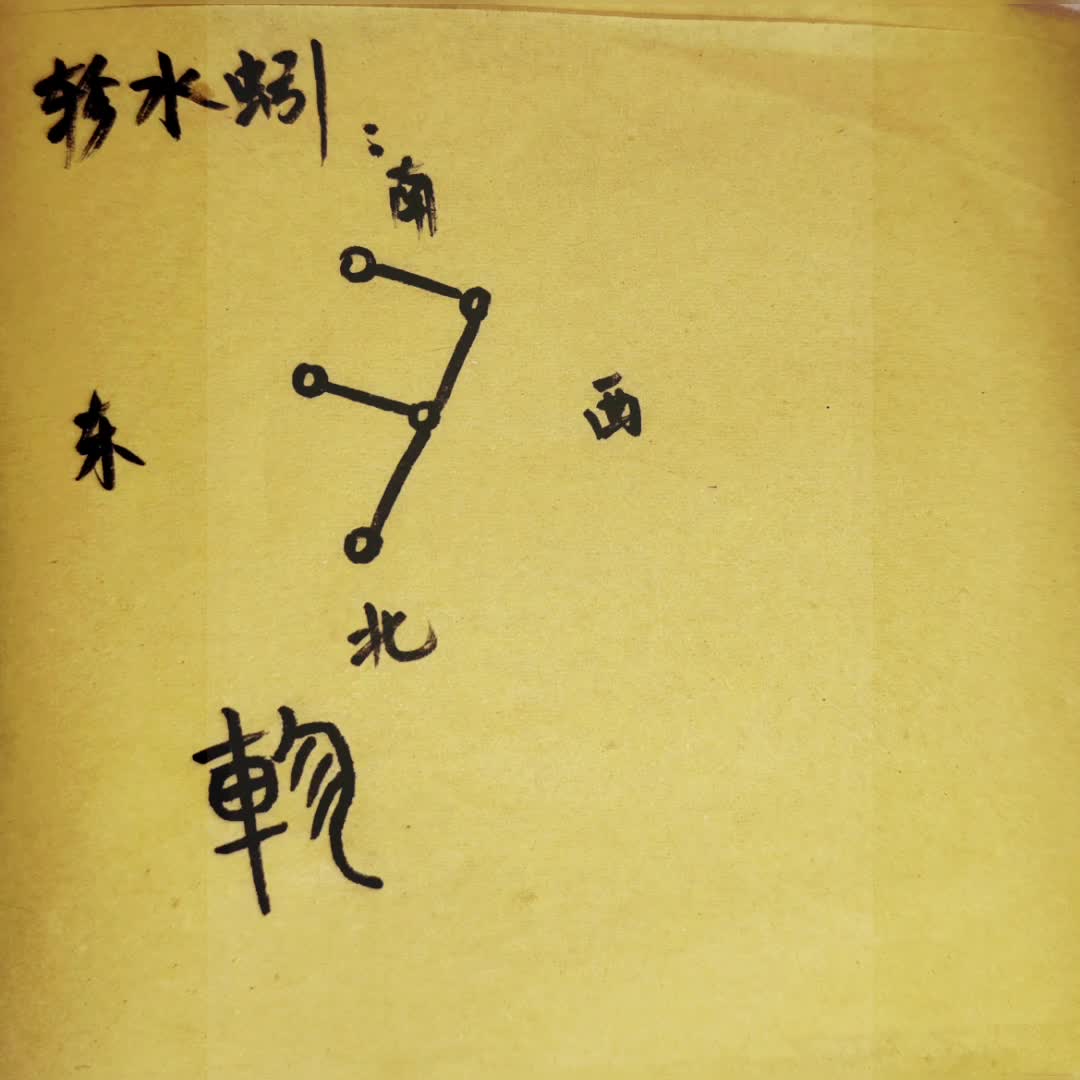 轸水蚓：
南
东
西
北
軫